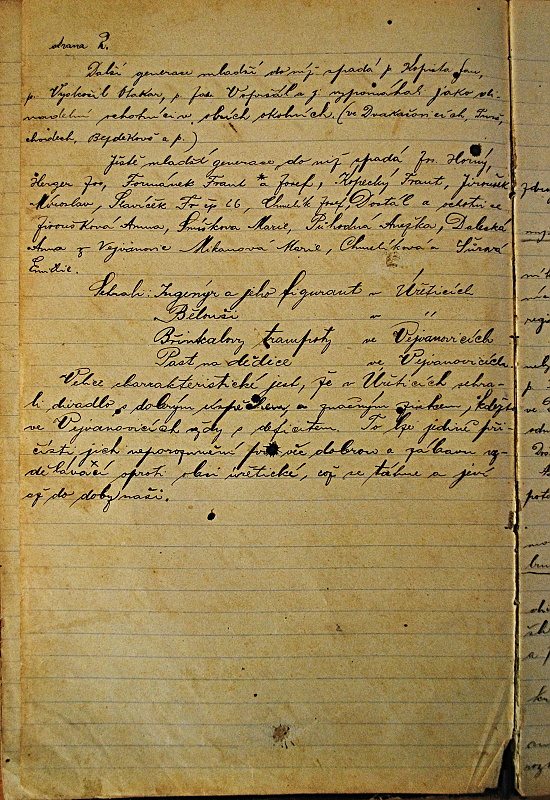 strana 2.
Další generace mladší do níž spadá p. Kopista Jan,
p. Vyskočil Otakar, p. Jos. Vopršál a j. vypomáhali jako
ochotníci v obcích okolních. (ve Dvakačovicích,
Bezděkově a p.)
Ještě mladší generace, do níž spadá Jos. Horný,
Herger Jos., Formánek Frant a Josef, Kopecký Frant, Jiroušek
Miroslav, Fr čp 66, Chmelík Josef, Dostál a ochotnice
Jiroušková Anna, Smíškova Marie, Půhodná Anežka, Daleská
Anna z Vejvanovic Mikanová Marie, Chmelíková a
Emilie.
Sehráli: Ingenýr a jeho figurant v Úřeticích
" Bělouši v "
Břinkalovy trampoty ve Vejvanovicích
Past na dědice ve Vejvanovicích
Velice charrakteristické jest, že v Úřeticích sehráli
divadlo s dobrým úspěchem a značným ziskem, kdežto
ve Vejvanovicích vždy s deficitem. To lze jedině při
čísti jich neporozumění pro věc dobrou a zábavu vz-
dělávací oproti obci úřetické, což se táhne a jeví
až do doby naší.